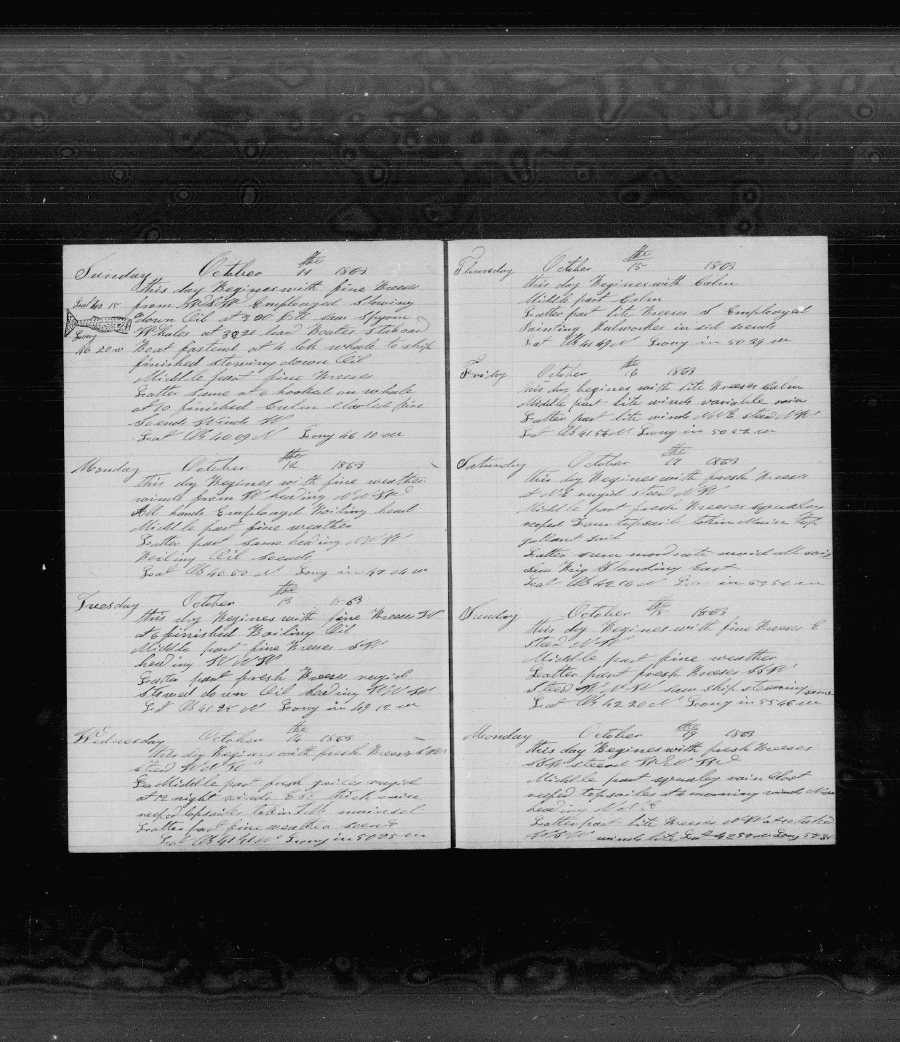 Sunday October 11 the 1863
this day Begines with fine Breeses
from WSW Employed Stowing
down Oil at 3 saw Spyrm
Whales at loard Boates Starboard
Boat fastened at 4 took whale to ship
finished stowing down Oil
Middle part fine Breeses
Latter same at 6 hooked on whale
at 10 finished
So ends Winds W
Lat By 40 09 N Long 46 10 w
Lat 40 15
Long
46 20 w
Monday October 12 the 1863
this dy Begines with fine weather
winds from W heading NNW
All hands Employed Boiling head
Middle part fine weather
Latter part same heading NNW
Boiling Oil so ends
Lat By 40 50 N Long in 47 04 w
Tuesday October 13 the 1863
this dy Begines with fine Breeses W
at 6 finished Boiling Oil
Middle part fine Breeses SW
heading WNW
Latter part fresh Breeses rugid
Stowed down Oil heading WNW
Lat By 41 25 N Long in 49 12 w
Wednesday October 14 the 1863
this dy Begines with fresh Breeses
steed WNW
Middle part fresh gailes rugid
at 12 night winds thick rain
reefed topsailes mainsail
Latter part fine weather so ends
Lat By 41 41 N Long in 50 25 w
Thursday October 15 the 1863
this day Begines with Calm
Middle part Calm
Latter part lite Breeses S Employed
Painting bulworkes in sid so ends
Lat By 41 49 N Long in 50 29 w
Friday October 16 the 1863
this dy begines with lite Breeses Calm
Middle part lite winds variable rain
Latter part lite winds NNE steed NW
Lat By 41 56 N Long in 50 52 w
Saturday October the 1863
this dy Begines with fresh Breeses
at NE rugid steed NW
Middle part fresh Breeses squaley
reefed topsails taken Main top
gallant sail
Latter sum mordrate maid all sail
saw Brig Standing East
Lat By 42 10 N in w
Sunday October 18 the 1863
this dy Begines with fine Breeses E
Steed NW
Middle part fine weather
Latter part fresh Breeses SSW
Steed WNW saw ship steering same
Lat By 42 20 N Long in 55 46 w
Monday October 19 the 1863
this day Begines with fresh Breeses
SSW steered W
Middle part squaley rain
reefed topsailes at 4 morning winds
heading
Latter part lite Breeses
winds lite Lat 42 50 N Long